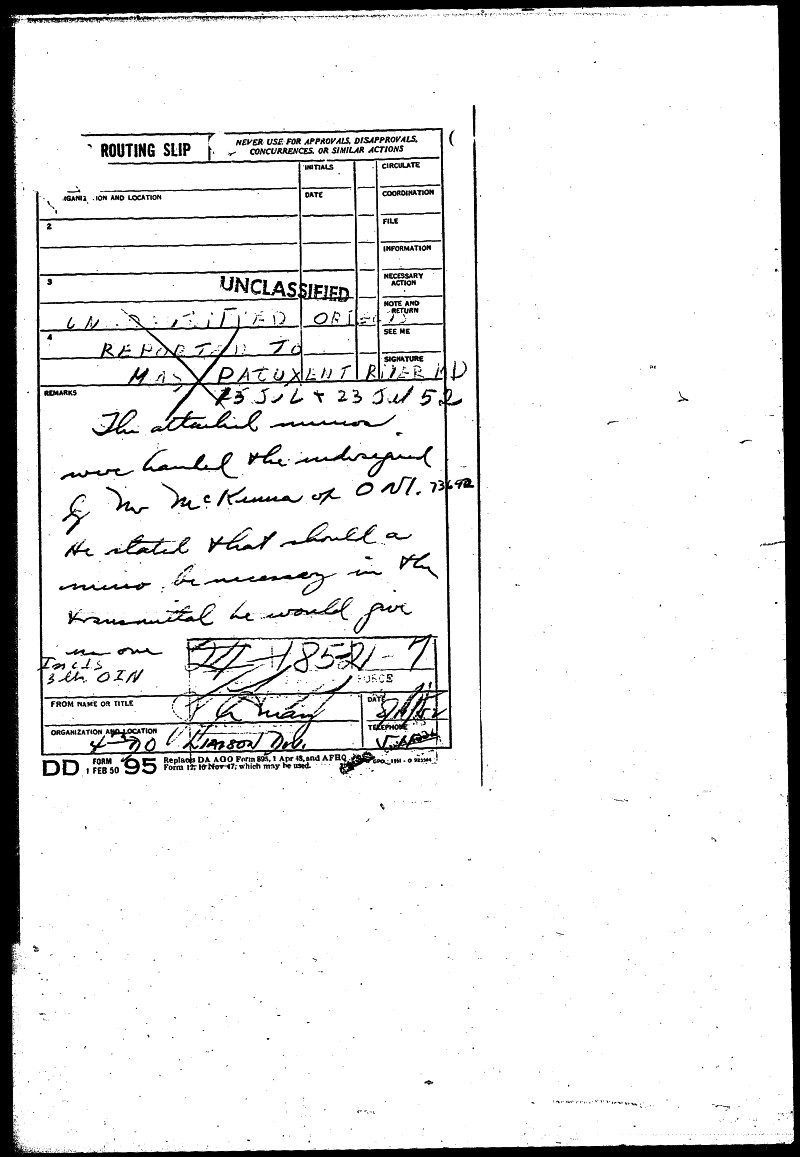 ROUTING SLIP
NEVER USE FOR APPROVALS, DISAPPROVALS,
CONCURRENCES, OR SIMILAR ACTIONS
INITIALS
CIRCULATE
ION AND LOCATION
DATE
COORDINATION
2
FILE
INFORMATION
3
UNCLASSIFIED
NECESSARY
ACTION
NOTE AND
RETURN
4
SEE ME
REPORTED TO
SIGNATURE
PATUXENT RIVER MD
REMARKS
23 JUL 52
The attached memos
were handed the undersigned
by Mr McKenna of ONI.
He stated that should a
memo be necessary in the
transmittal he would give
us one
Incls
18521-7
3 OIN
FORCE
FROM NAME OR TITLE
DATE
ORGANIZATION AND LOCATION
TELEPHONE
LIAISON DIV.
DD FORM 1 FEB 50 95 Replaces DA AGO Form 895, 1 Apr 48, and AFHQ
Form 12, 10 Nov 47, which may be used.